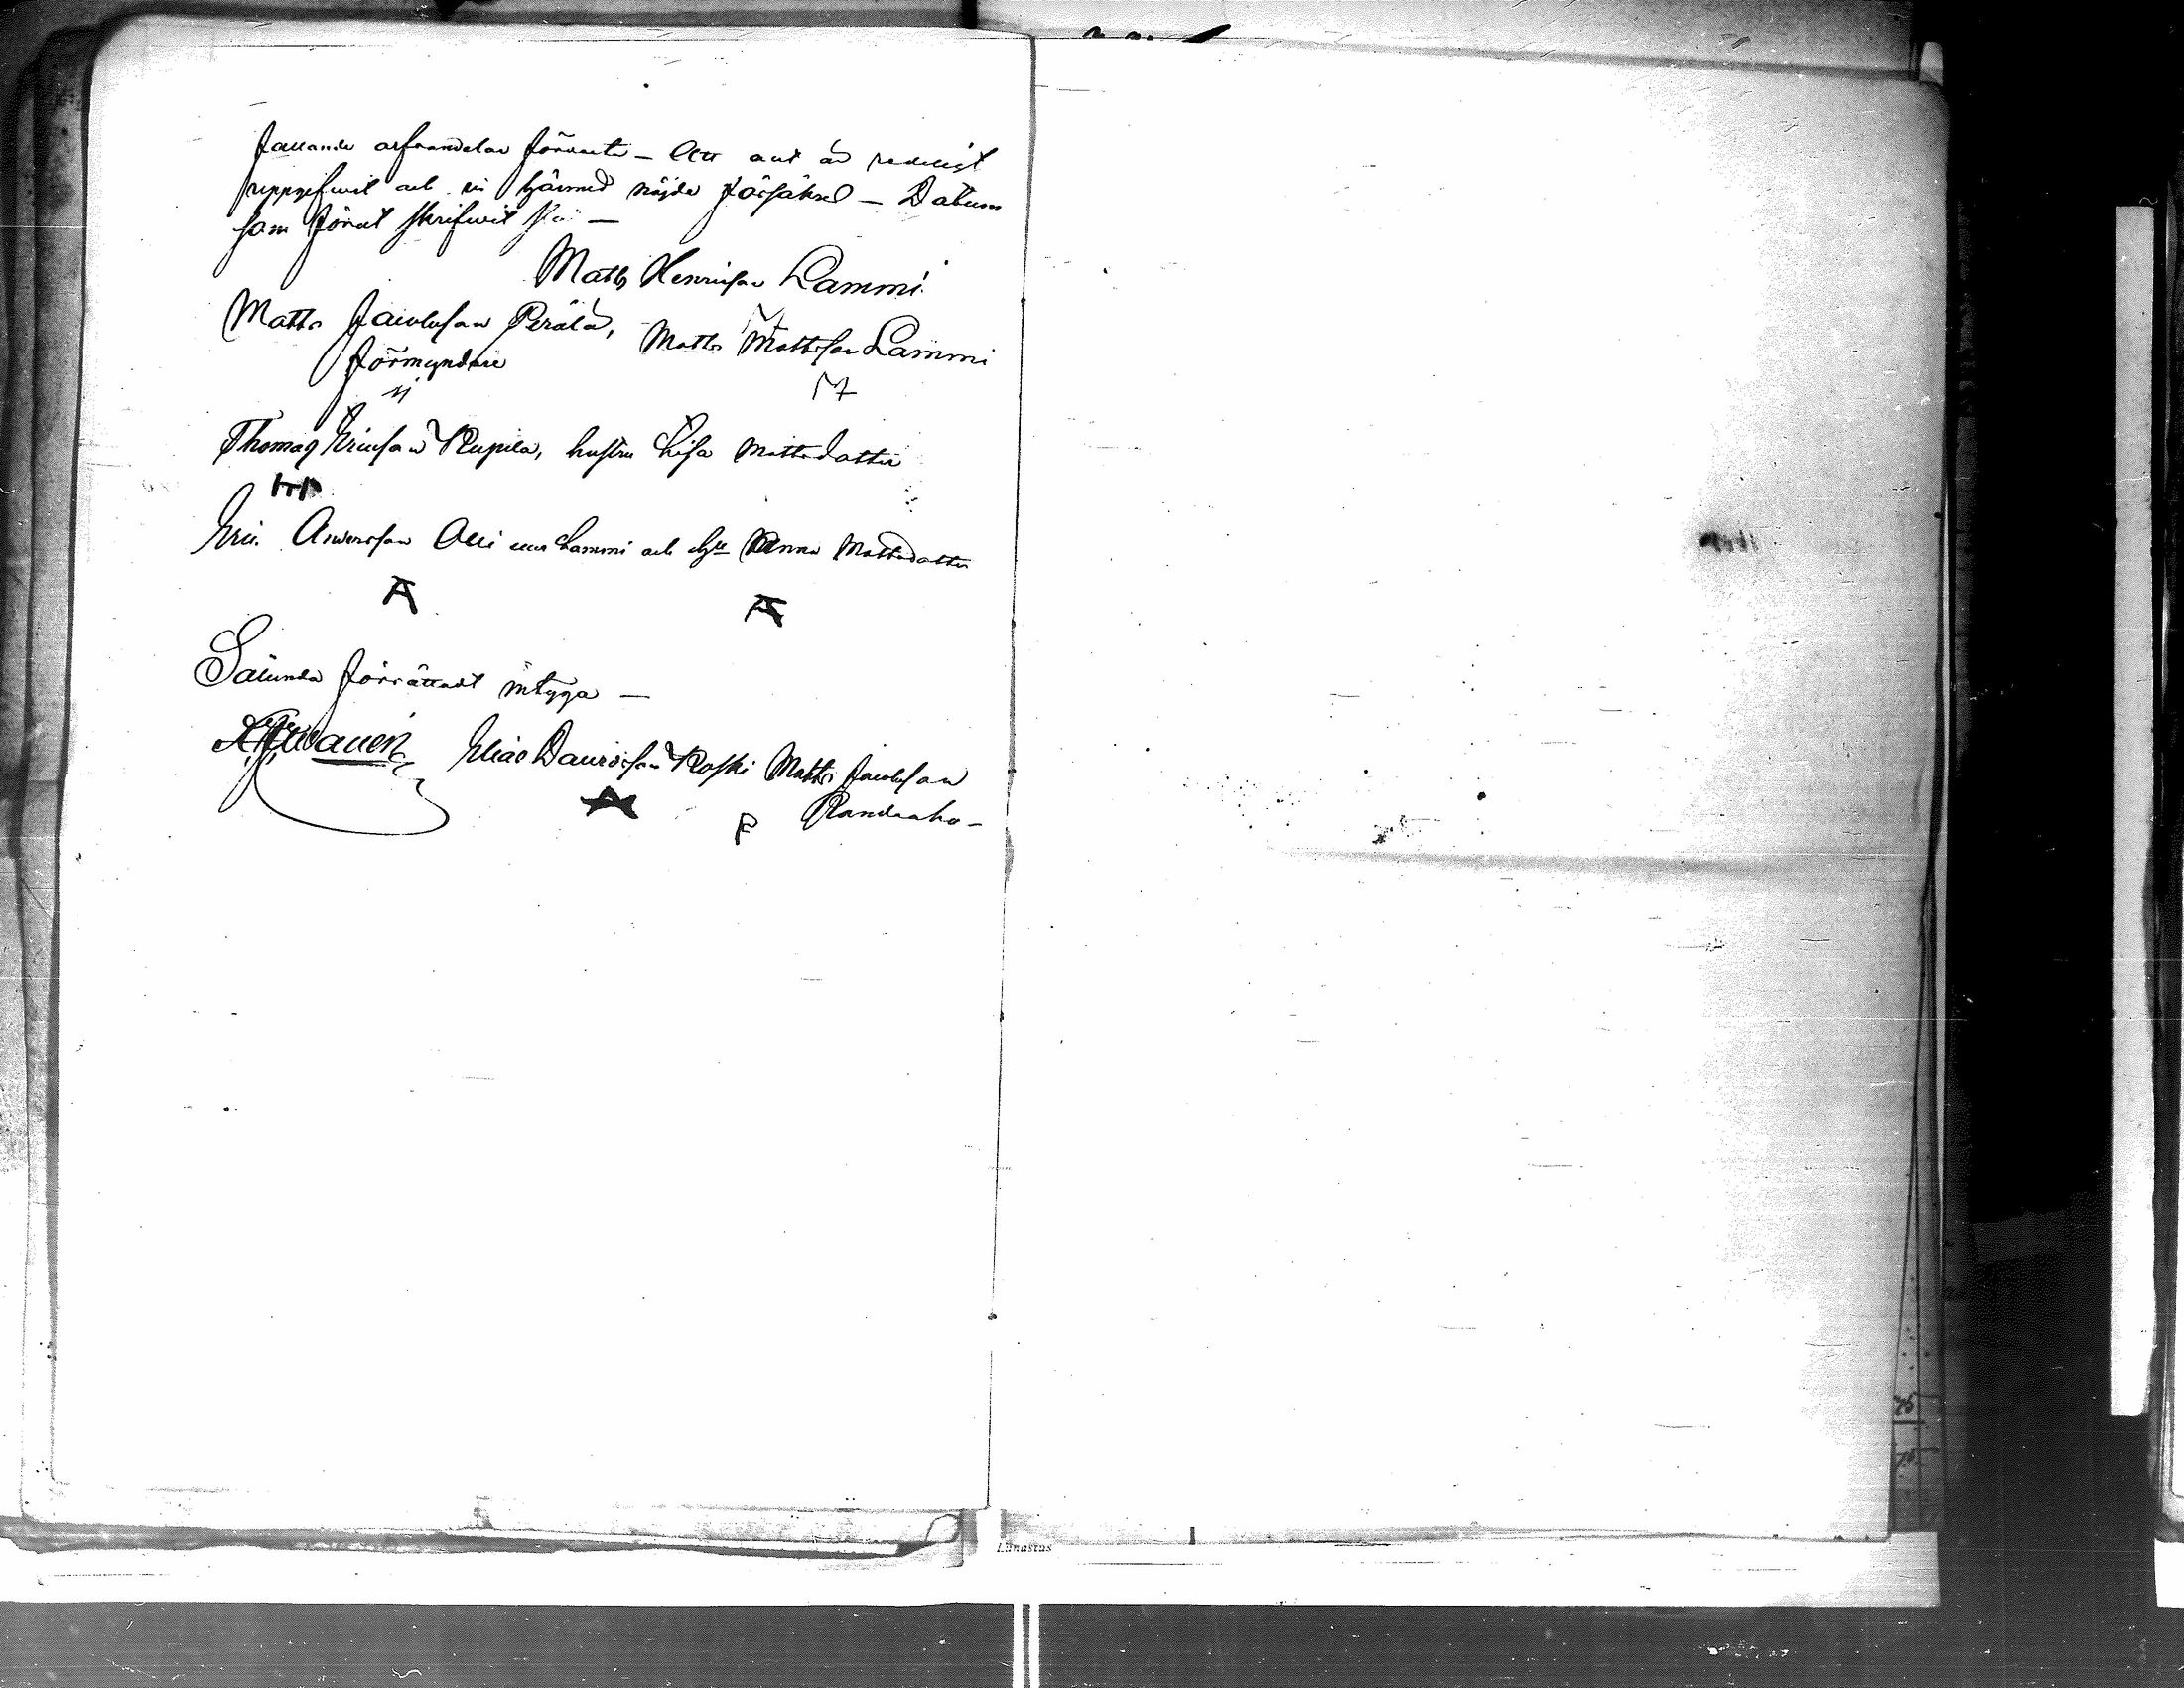 fallande arfsandelar förvarta – Att allt är redeligt
uppgifwit och vi härmed nöjde försäkras – Datum
som förut skrifwit står –
Matts Henricsson Lammi
Matts Jacobsson Perälä, Matts Mattsson Lammi
förmyndare
Thomas Ericsson Rupila, hustru Lisa Mattsdotter
Eric Andersson Alli eller Lammi och hu Anna Mattsdotter
Sålunda förrättadt intyga –
Elias Davidsson Koski Matts Jacobsson
Randaaho –
Lunastus